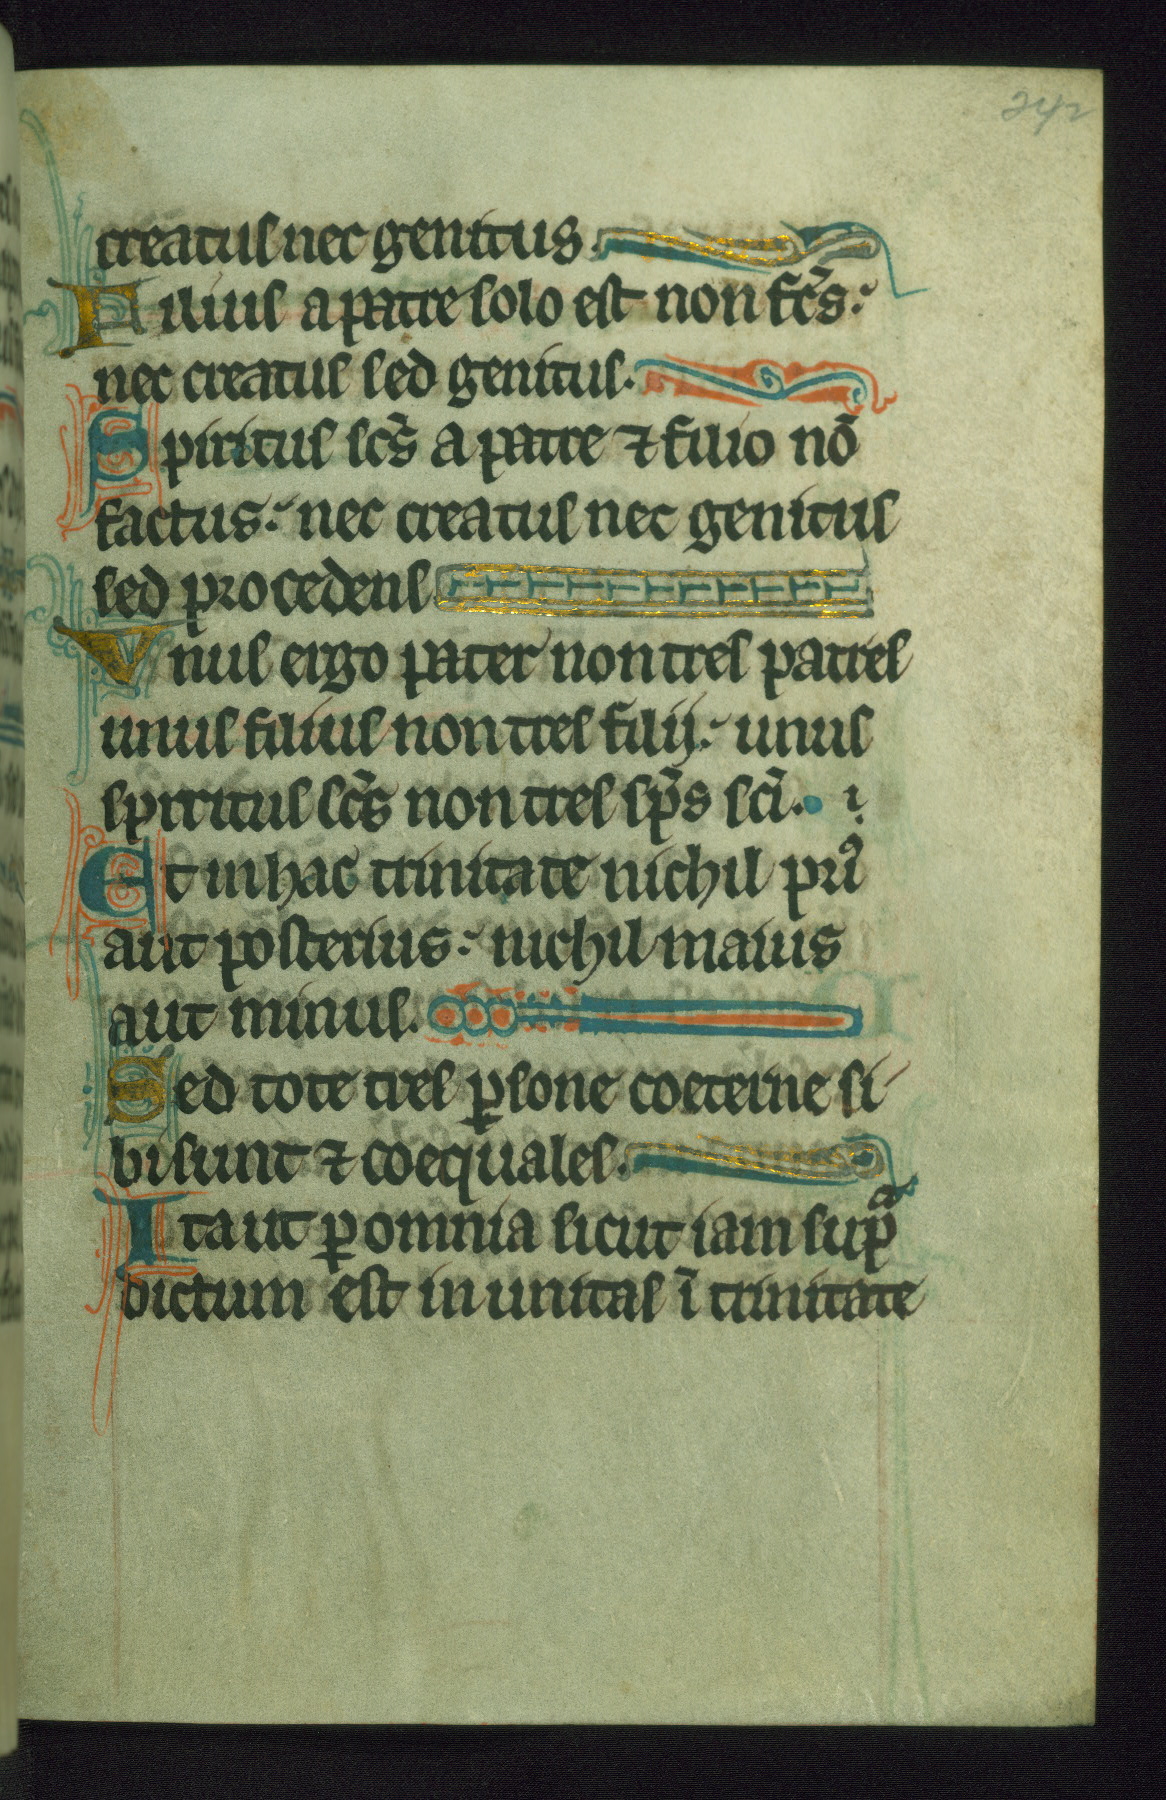 242
creatus nec genitus.
Filius a patre solo est non fc̄s:
nec creatus sed genitus.
Spiritus sc̄s a patre ⁊ filio nō
factus: nec creatus nec genitus
sed procedens
Vnus ergo pater non tres patres
unus filius non tres filij: unus
spiritus sc̄s non tres sp̄s sc̄i.
Et in hac trinitate nichil priꝰ
aut posterius: nichil maius
aut minus.
Sed tote tres ꝑsone coeterne si
bi sunt ⁊ coequales.
Ita ut ꝑ omnia sicut iam supᵃ
dictum est in unitas ī trinitate